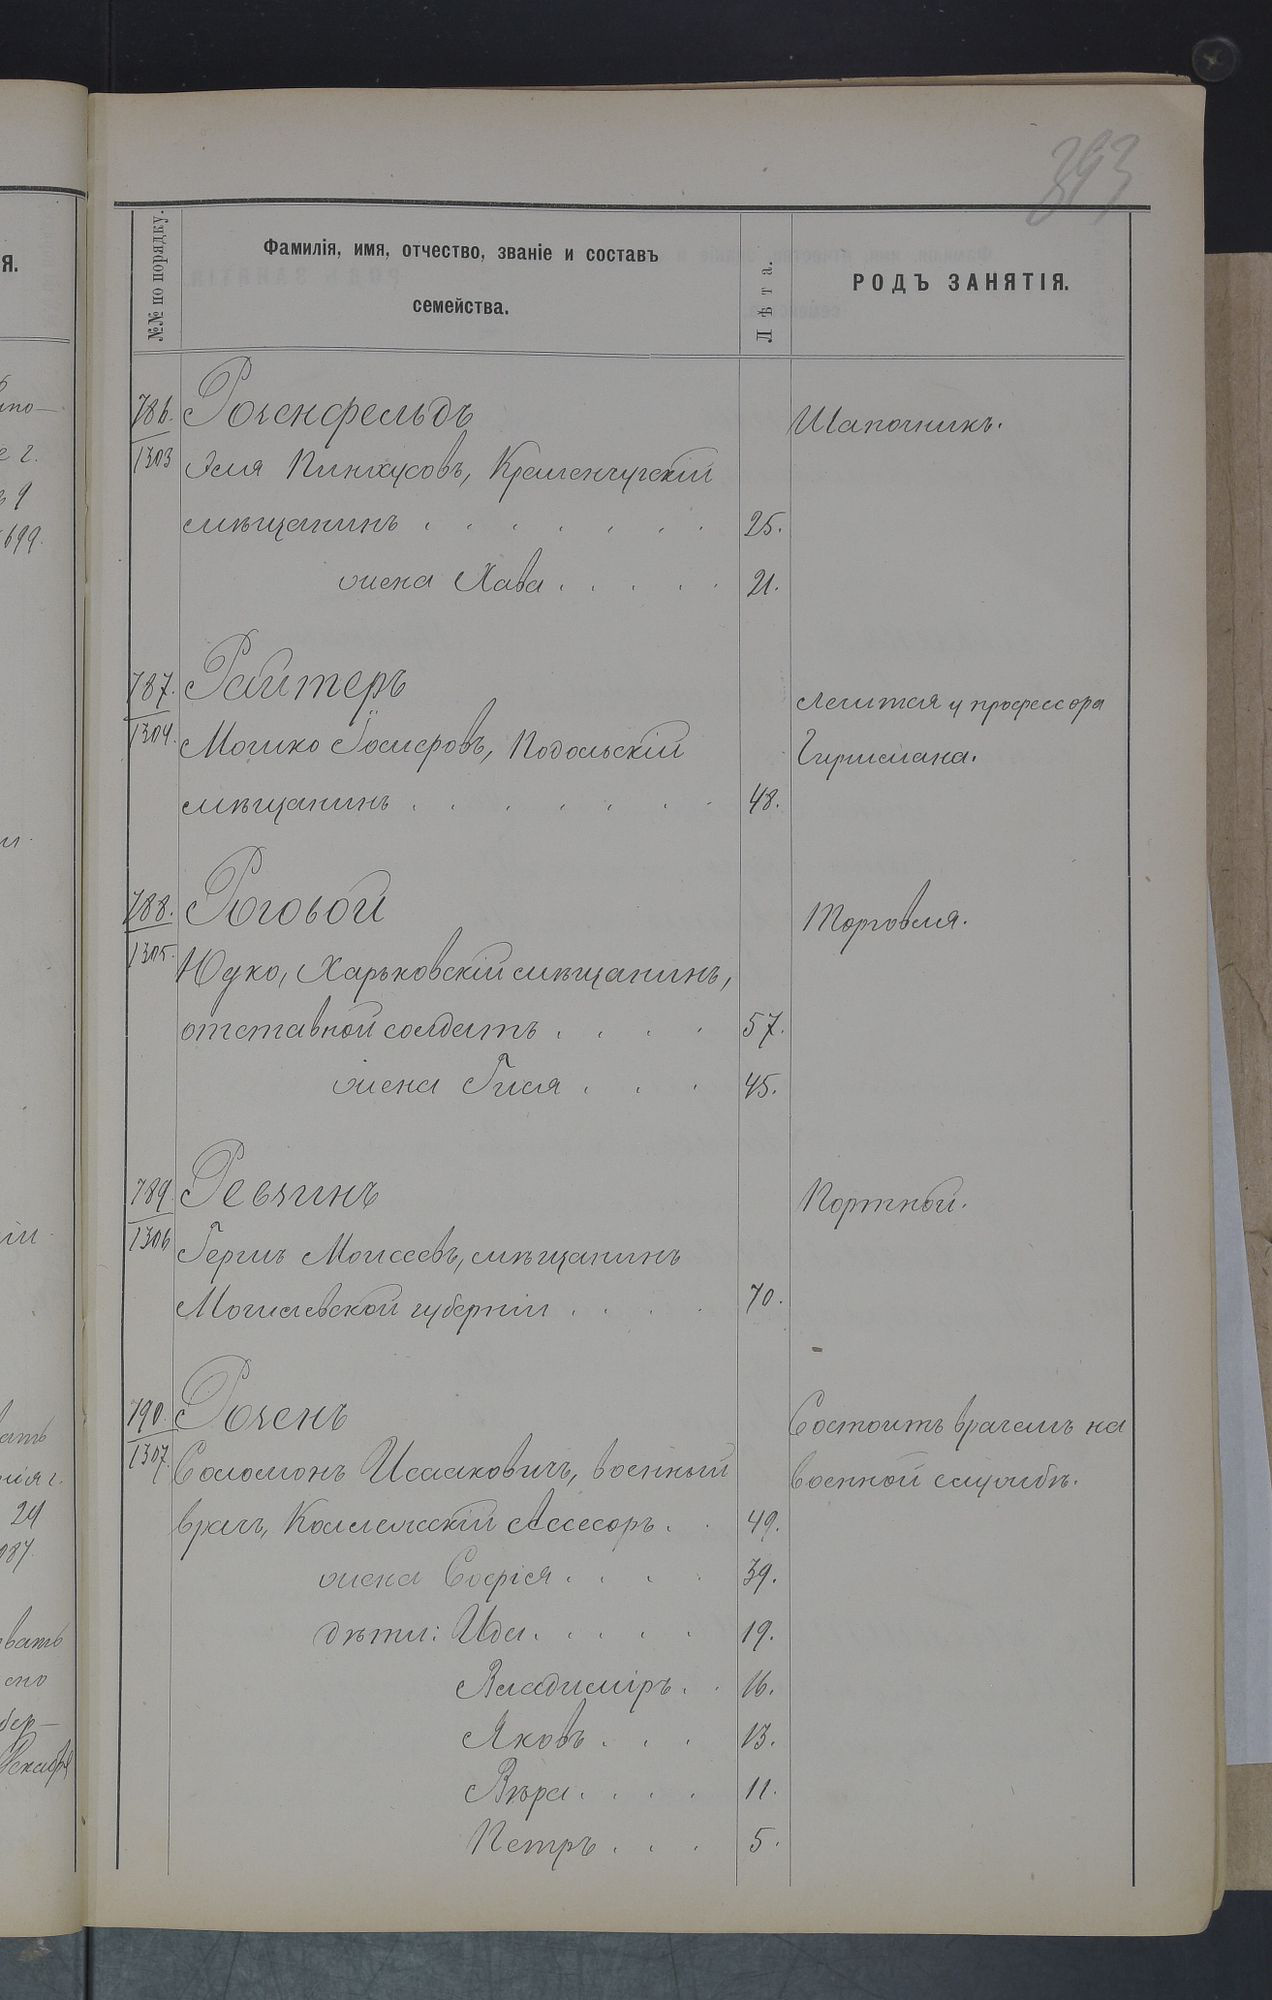 393
№№ по порядку.
Фамилія, имя, отчество, званіе и составъ
семейства.
Лѣта.
РОДЪ ЗАНЯТІЯ.
786. Розенфельдъ Шапочникъ.
1303 Эля Пинхусовъ, Кременчугскій
мѣщанинъ . . . . . . . 25.
жена Хава . . . . . 21.
787. Райтеръ Лечится у профессора
1304. Мошко Іосифовъ, Подольскій Гиршмана.
мѣщанинъ . . . . . . . 48.
788. Роговой Торговля.
1305. Юдко, Харьковскій мѣщанинъ,
отставной солдатъ . . . . 57.
жена Гися . . . 45.
789. Ревзинъ Портной.
1306 Гершъ Моисеевъ, мѣщанинъ
Могилевской губерніи . . . . 70.
790. Розенъ Состоитъ врачемъ на
1307. Соломонъ Исааковичъ, военный военной службѣ.
врачъ, Коллежскій Ассесоръ . . 49.
жена Софія . . . . 39.
дѣти: Ида . . . . . 19.
Владиміръ . . 16.
Яковъ . . . 13.
Вѣра . . . . 11.
Петръ . . . 5.
Я.
е г.
699.
29
087.